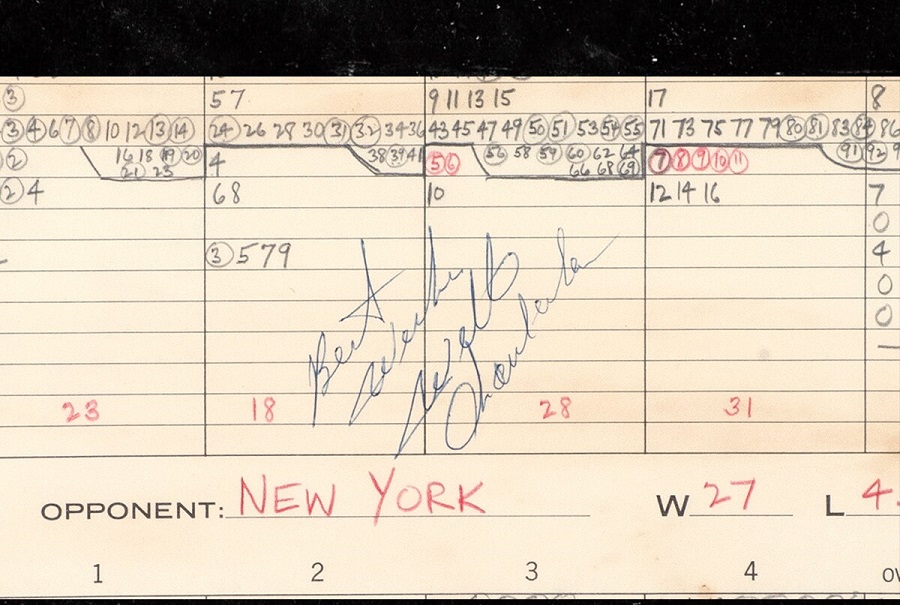 ③ 57 9 11 13 15 17 8
③ ④ 6 ⑦ ⑧ 10 12 ⑬ ⑭ ㉔ 26 28 30 ㉛ ㉜ 34 36 43 45 47 49 ㊿ 51 53 54 55 71 73 75 77 79 80 81 83 84 86
② 16 18 19 20 4 38 39 41 56 56 58 59 60 62 64 7 8 9 10 11 91 92 9
21 23 66 68 69
② 4 68 10 12 14 16 7
0
③ 579 4
0
0
Best
Wishes
Wilt
Chamberlain
23 18 28 31
OPPONENT: NEW YORK W 27 L 4
1 2 3 4 OV